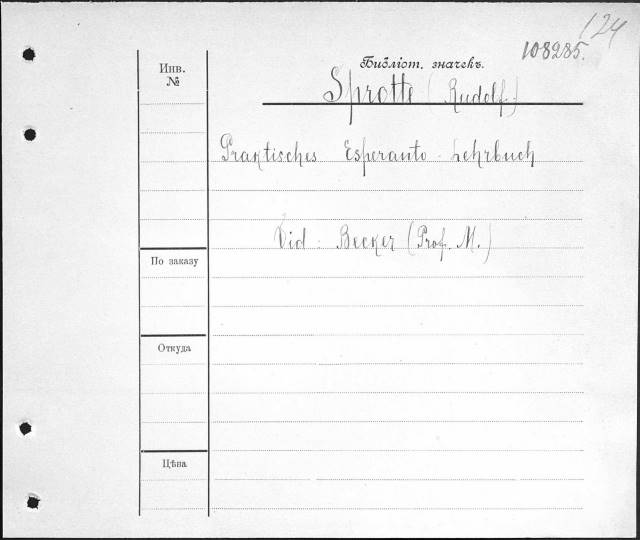 124
108285.
Инв.
№
Библіот. значекъ.
Sprotte (Rudolf.)
Praktisches Esperanto-Lehrbuch
Vid: Becker (Prof. M.)
По заказу
Откуда
Цѣна